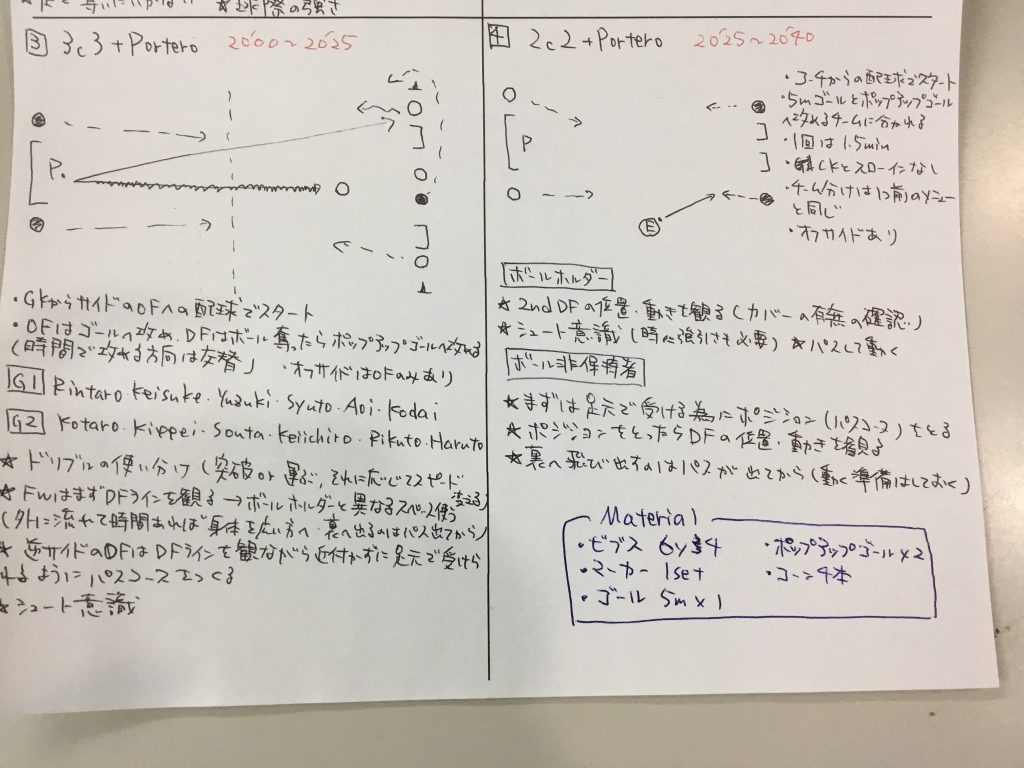 ★球際の強さ
3 3c3+Portero 20:00~20:25
P.
・GKからサイドのOFへの配球でスタート
・OFはゴールへ攻め、DFはボール奪ったらポップアップゴールへ攻める
(時間で攻める方向は交替) ・オフサイドはOFのみあり
G1 Rintaro Keisuke・Yuzuki・Syuto・Aoi・Kodai
G2 Kotaro・Kippei・Souta・Keiichiro・Rikuto・Haruto
★ドリブルの使い分け(突破or運ぶ、それに応じてスピード変える)
★FWはまずDFラインを観る→ボールホルダーと異なるスペース使う
(外に流れて時間あれば身体を広い方へ・裏へ出るのはパス出てから)
★逆サイドのDFはDFラインを観ながら近付かずに足元で受けら
れるようにパスコースをつくる
★シュート意識
4 2c2+Portero 20:25~20:40
P
E
・コーチからの配球でスタート
・5mゴールとポップアップゴール
へ攻めるチームに分かれる
・1回は1.5min
・CKとスローインなし
・チーム分けは1つ前のメニュー
と同じ
・オフサイドあり
ボールホルダー
★2ndDFの位置・動きを観る(カバーの有無の確認)
★シュート意識(時に強引さも必要) ★パスして動く
ボール非保持者
★まずは足元で受ける為にポジション(パスコース)をとる
★ポジションをとったらDFの位置・動きを観る
★裏へ飛び出すのはパスが出てから(動く準備はしておく)
Material
・ビブス 6y 4
・マーカー 1set
・ゴール 5m×1
・ポップアップゴール×2
・コーン4本